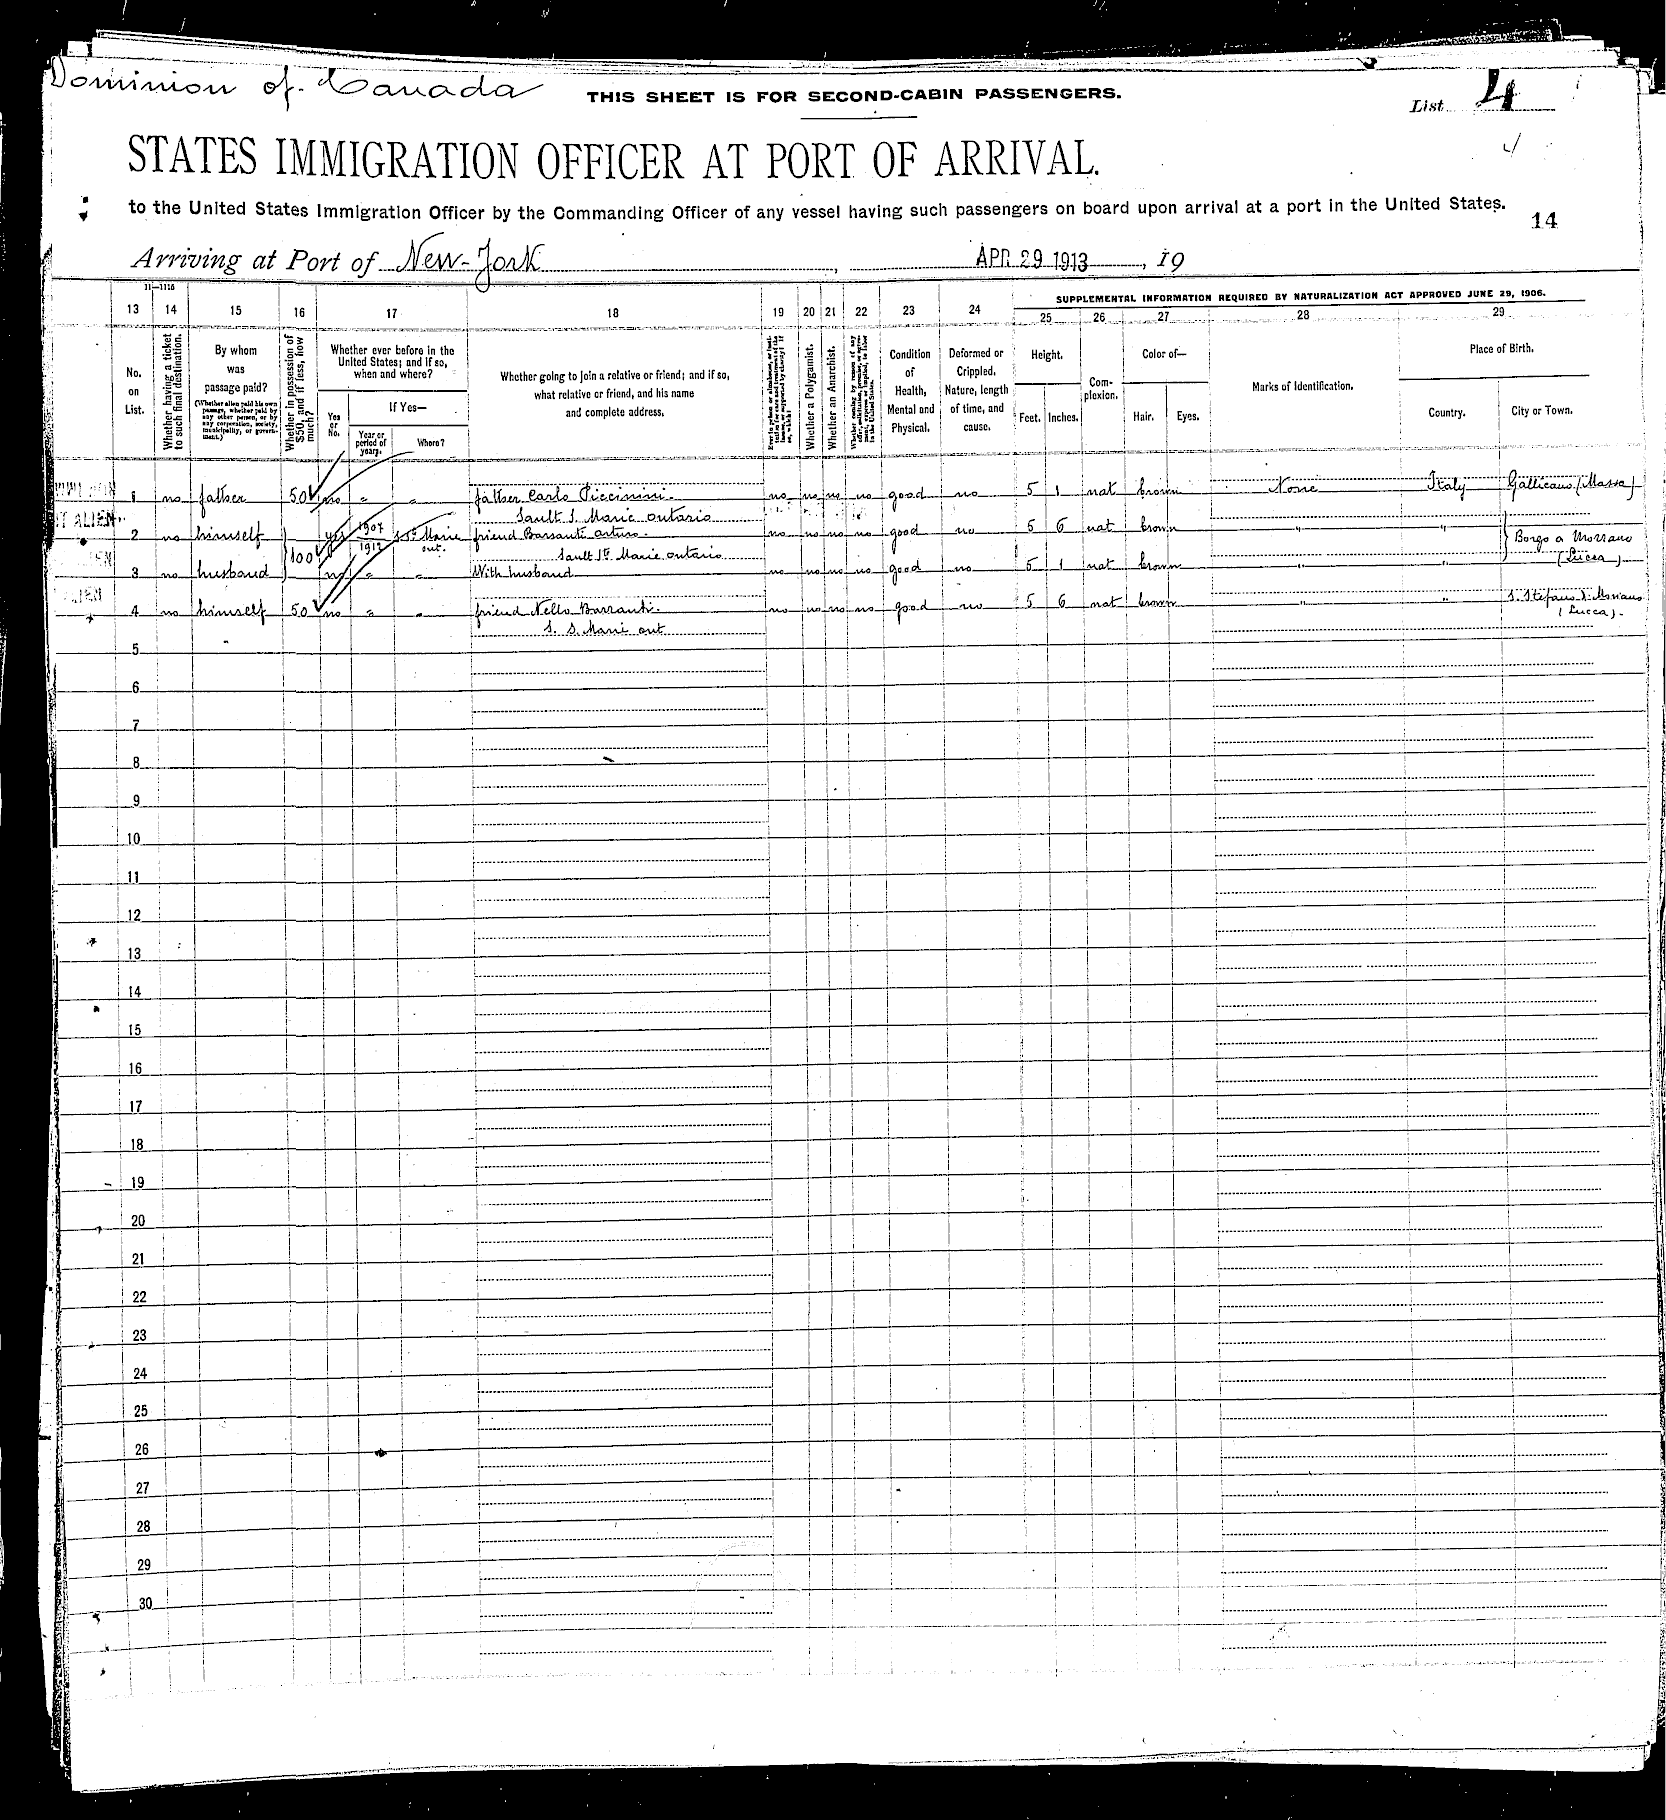 Dominion of Canada
THIS SHEET IS FOR SECOND-CABIN PASSENGERS.
List 4
STATES IMMIGRATION OFFICER AT PORT OF ARRIVAL.
to the United States Immigration Officer by the Commanding Officer of any vessel having such passengers on board upon arrival at a port in the United States.
14
Arriving at Port of New-York, APR 29 1913, 19
11—1116
SUPPLEMENTAL INFORMATION REQUIRED BY NATURALIZATION ACT APPROVED JUNE 29, 1906.
13 14 15 16 17 18 19 20 21 22 23 24 25 26 27 28 29
No. on List.
Whether having a ticket to such final destination.
By whom was passage paid?
(Whether alien paid his own passage, whether paid by any other person, or by any corporation, society, municipality, or government.)
Whether in possession of $50, and if less, how much?
Whether ever before in the United States; and if so, when and where?
Yes or No.
If Yes—
Year or period of years.
Where?
Whether going to join a relative or friend; and if so, what relative or friend, and his name and complete address.
Whether a Polygamist.
Whether an Anarchist.
Condition of Health, Mental and Physical.
Deformed or Crippled. Nature, length of time, and cause.
Height.
Feet. Inches.
Complexion.
Color of—
Hair. Eyes.
Marks of Identification.
Place of Birth.
Country. City or Town.
1 no father 50 no " " father Carlo Piccinini no no no no good no 5 1 nat brown None Italy Gallicano (Massa)
Sault S. Marie ontario
2 no himself yes 1907 1912 St Marie ont. friend Barsanti arturo no no no no good no 5 6 nat brown " " Borgo a Mozzano
100 Sault Ste Marie ontario (Lucca)
3 no husband no " " With husband no no no no good no 5 1 nat brown " "
4 no himself 50 no " " friend Nello Barsanti no no no no good no 5 6 nat brown " " S. Stefano d. Moriano
S. S. Marie ont (Lucca).
5
6
7
8
9
10
11
12
13
14
15
16
17
18
19
20
21
22
23
24
25
26
27
28
29
30